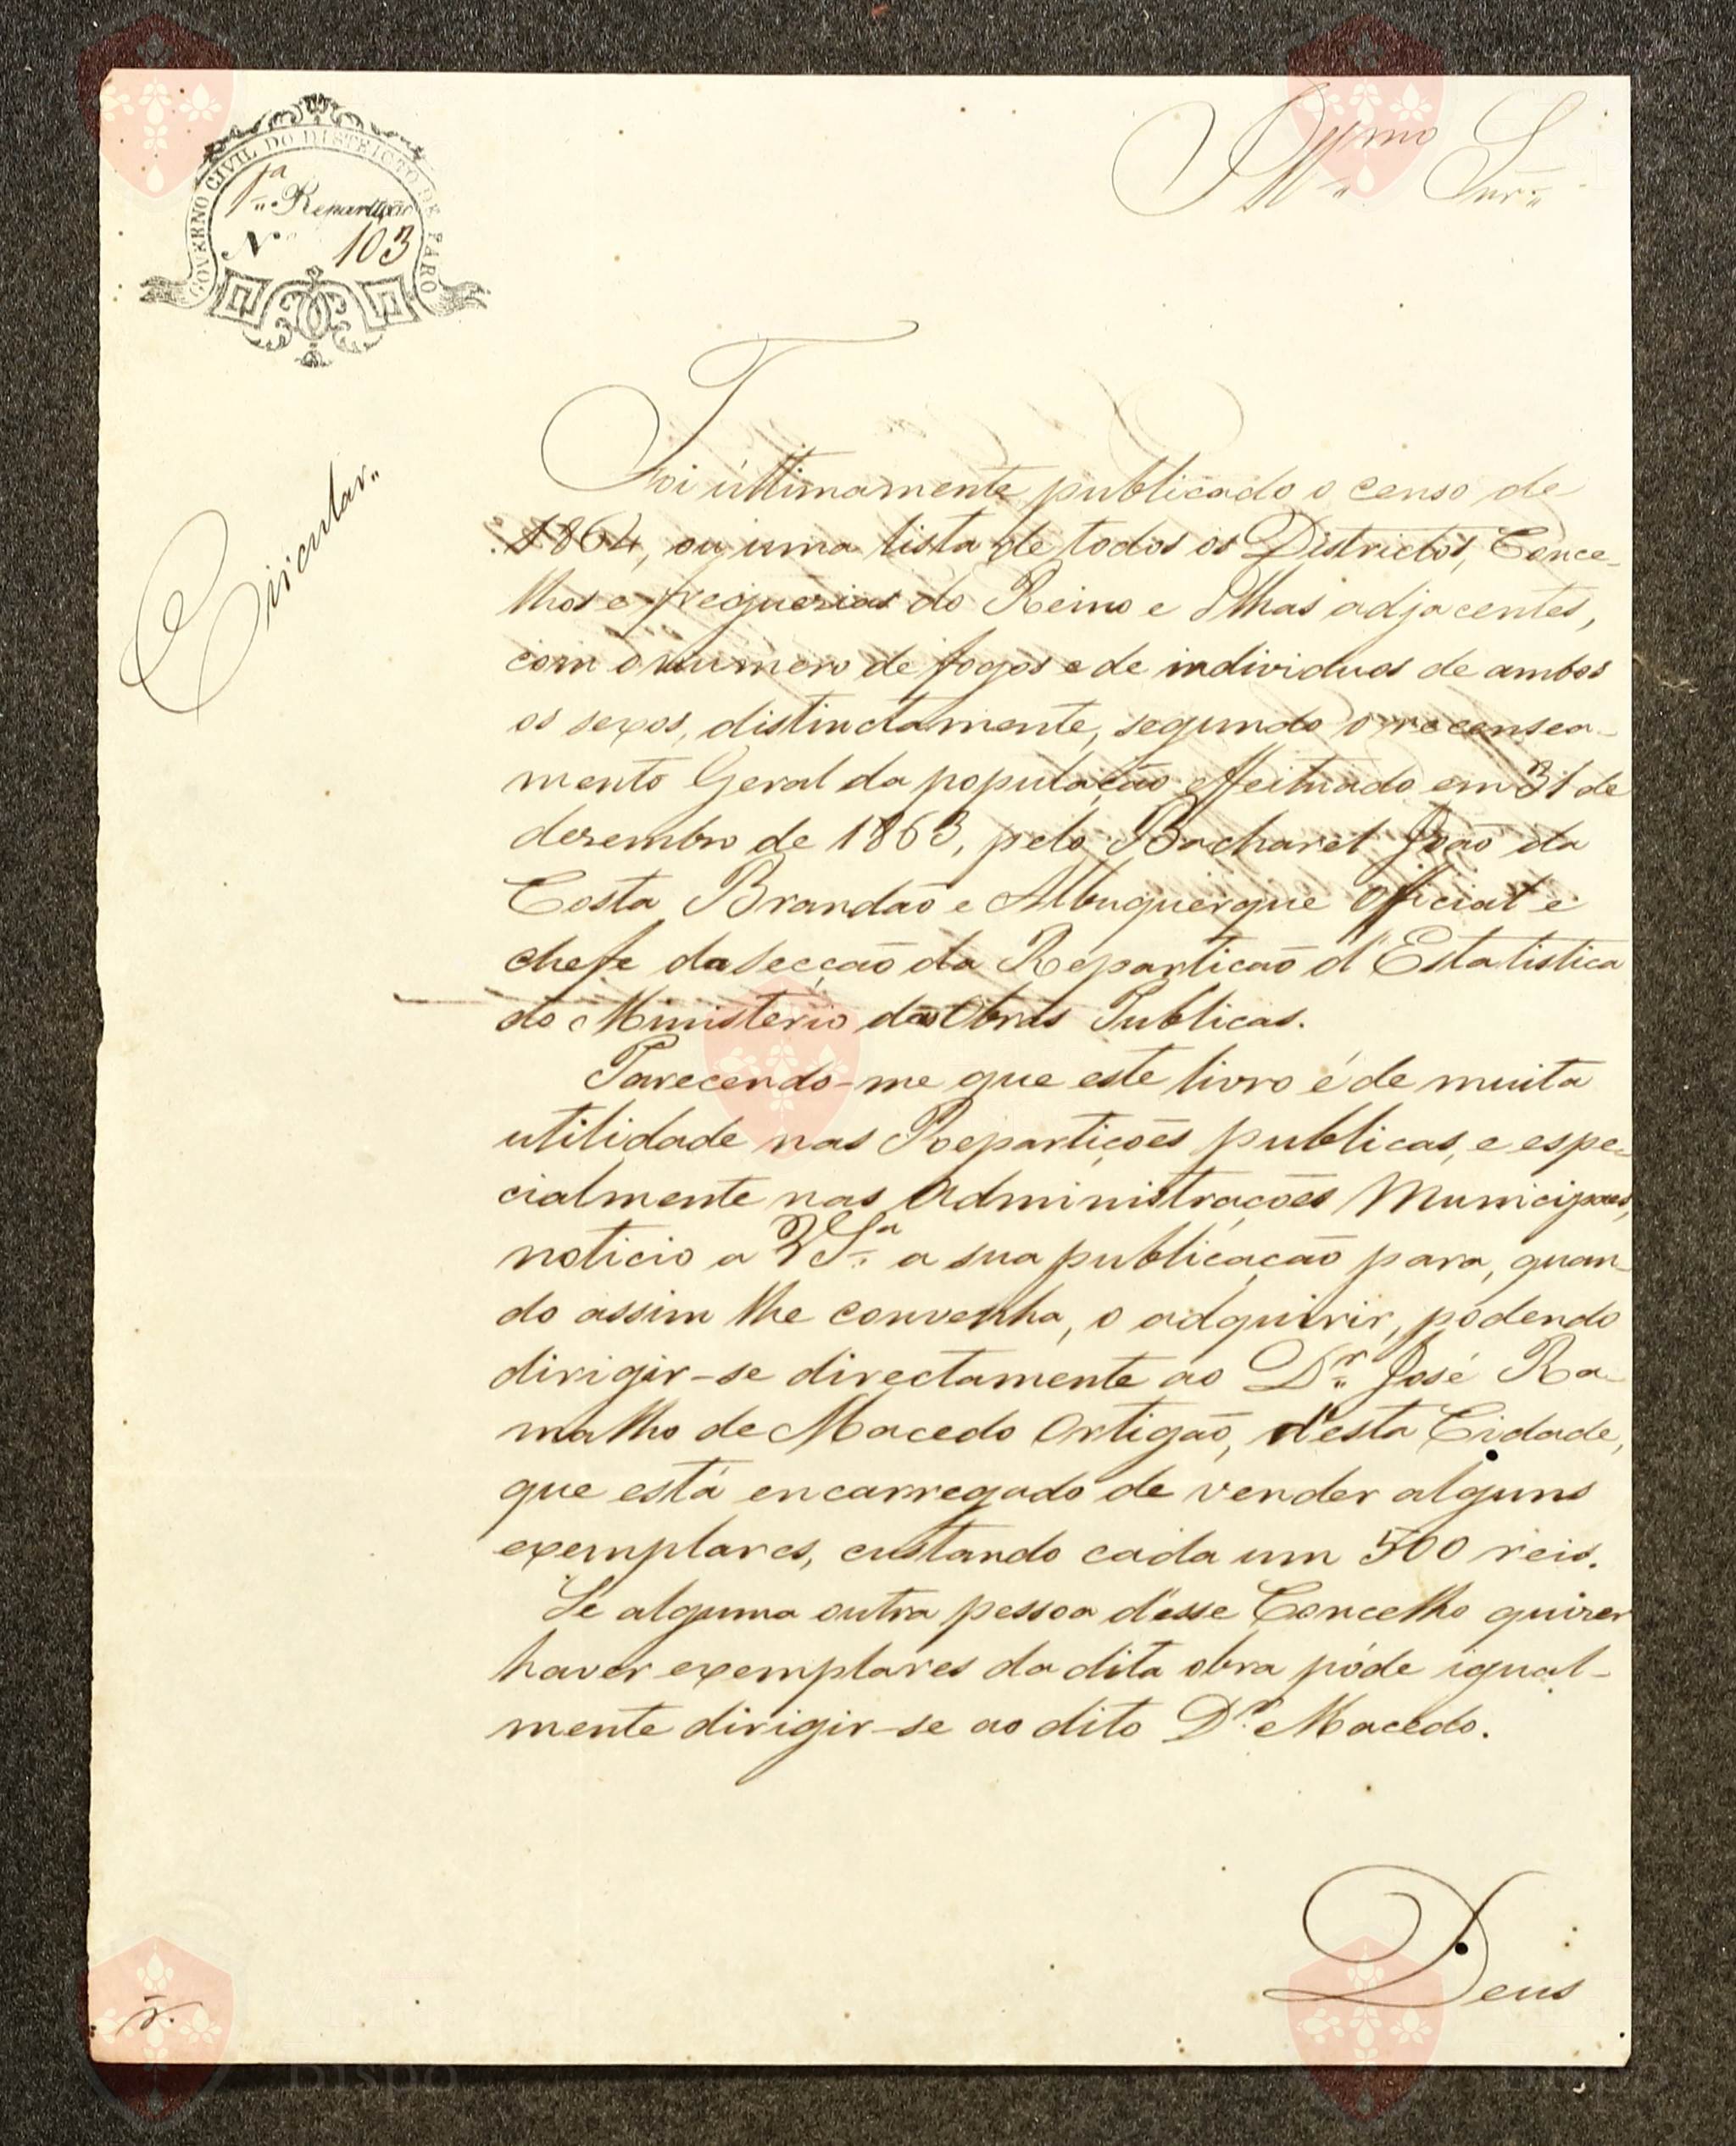 GOVERNO CIVIL DO DISTRICTO DE FARO
1.ª Repartição
N.º 103
Illmo Snr.
Circular.
Foi últimamente publicado o censo de
1864, ou uma lista de todos os Districtos, Conce-
lhos e freguesias do Reino e Ilhas adjacentes,
com o numero de fogos e de individuos de ambos
os sexos, distinctamente, segundo o recensea-
mento Geral da população effeituado em 31 de
dezembro de 1863, pelo Bacharel João da
Costa Brandão e Albuquerque Official e
chefe da secção da Repartição d'Estatistica
do Ministerio das Obras Publicas.
Parecendo-me que este livro é de muita
utilidade nas Repartições publicas, e espe-
cialmente nas Administrações Municipaes,
noticio a V Sª a sua publicação para, quan-
do assim lhe convenha, o adquirir, podendo
dirigir-se directamente ao Dr. José Ra-
malho de Macedo Ortigão, d'esta Cidade,
que está encarregado de vender alguns
exemplares, custando cada um 500 reis.
Se alguma outra pessoa d'esse Concelho quizer
haver exemplares da dita obra póde igual-
mente dirigir-se ao dito Dr. Macedo.
Deus
Bispo